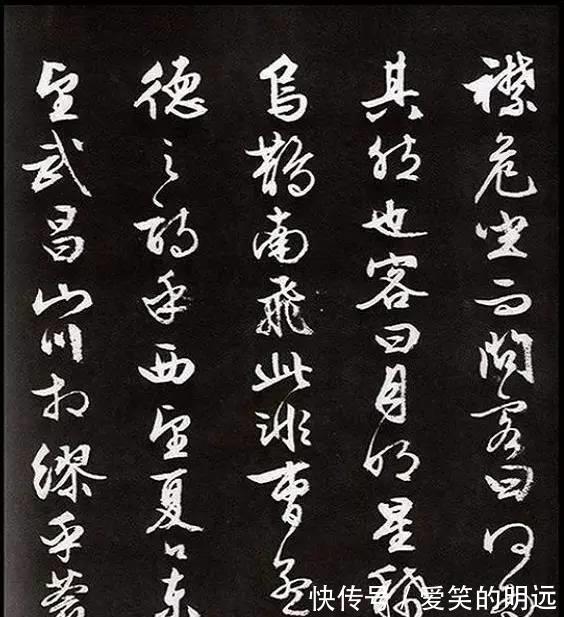 襟危坐而問客曰何為
其然也客曰月明星稀
烏鵲南飛此非曹孟
德之詩乎西望夏口東
望武昌山川相繆乎蒼
快传号/爱笑的明远